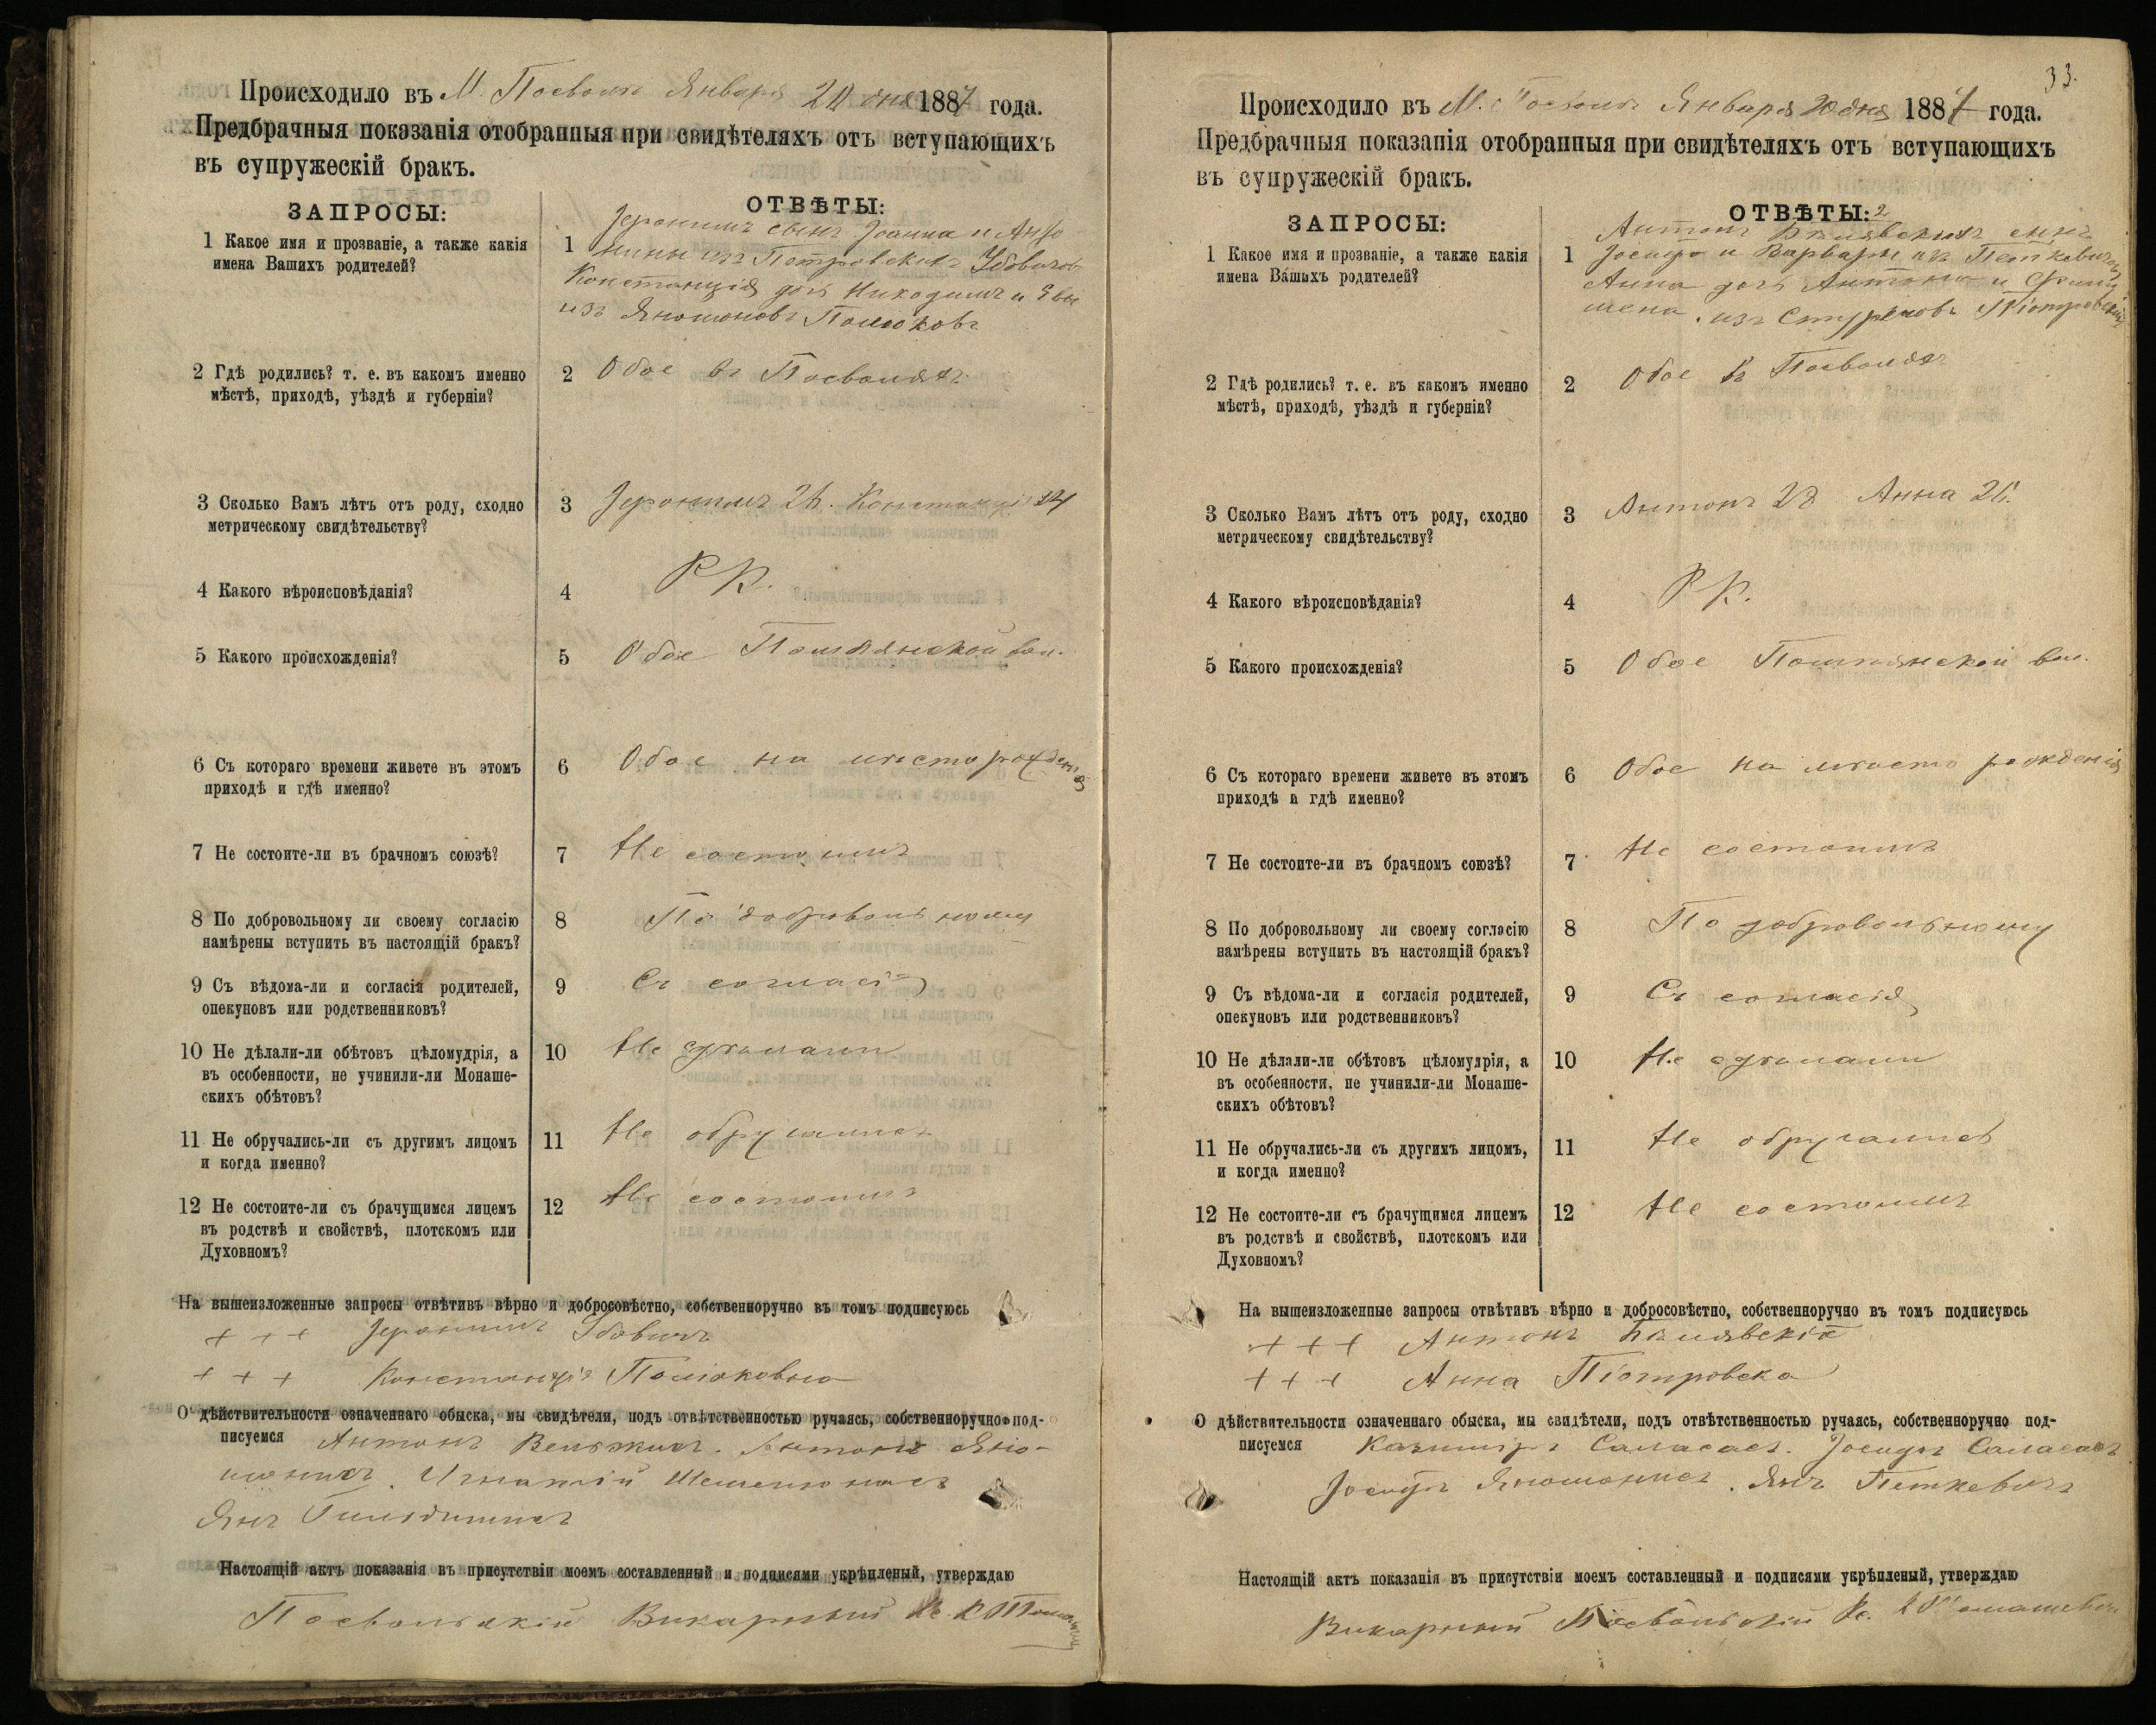 Происходило въ М. Посволь Января 20 дня 1887 года.
Предбрачныя показанія отобранныя при свидѣтеляхъ отъ вступающихъ
въ супружескій бракъ.
ЗАПРОСЫ:
ОТВѢТЫ:
1 Какое имя и прозваніе, а также какія
имена Вашихъ родителей?
1 Іеронимъ сынъ Іоанна и Анто
нины изъ Петровскихъ
Констанція дочь Никодима и Евы
изъ Янюшоновъ
2 Гдѣ родились? т. е. въ какомъ именно
мѣстѣ, приходѣ, уѣздѣ и губерніи?
2 Обое въ Посволяхъ
3 Сколько Вамъ лѣтъ отъ роду, сходно
метрическому свидѣтельству?
3 Іеронимъ Констанція
4 Какого вѣроисповѣданія?
4 Р К.
5 Какого происхожденія?
5 Обое вол.
6 Съ котораго времени живете въ этомъ
приходѣ и гдѣ именно?
6 Обое на мѣсто рожденія
7 Не состоите-ли въ брачномъ союзѣ?
7 Не состоимъ
8 По добровольному ли своему согласію
намѣрены вступить въ настоящій бракъ?
8 По добровольному
9 Съ вѣдома-ли и согласія родителей,
опекуновъ или родственниковъ?
9 Съ согласія
10 Не дѣлали-ли обѣтовъ цѣломудрія, а
въ особенности, не учинили-ли Монаше-
скихъ обѣтовъ?
10 Не сдѣлали
11 Не обручались-ли съ другимъ лицомъ
и когда именно?
11 Не обручались
12 Не состоите-ли съ брачущимся лицемъ
въ родствѣ и свойствѣ, плотскомъ или
Духовномъ?
12 Не состоимъ
На вышеизложенные запросы отвѣтивъ вѣрно и добросовѣстно, собственноручно въ томъ подписуюсь
+ + + Іеронимъ
+ + + Констанція
О дѣйствительности означеннаго обыска, мы свидѣтели, подъ отвѣтственностью ручаясь, собственноручно под-
писуемся Антонъ Антонъ Яню-
шонисъ. Игнатій
Янъ
Настоящій актъ показанія въ присутствіи моемъ составленный и подписями укрѣпленый, утверждаю
Посвольскій Викарный Кс.
33.
Происходило въ М. Посволь Января 20 дня 1887 года.
Предбрачныя показанія отобранныя при свидѣтеляхъ отъ вступающихъ
въ супружескій бракъ.
ЗАПРОСЫ:
ОТВѢТЫ: 2
1 Какое имя и прозваніе, а также какія
имена Вашихъ родителей?
1 Антонъ Бѣлявскій сынъ
Іосифа и Варвары изъ Петкевичовъ
Анна дочь Антона и
изъ Піотровскій
2 Гдѣ родились? т. е. въ какомъ именно
мѣстѣ, приходѣ, уѣздѣ и губерніи?
2 Обое въ Посволяхъ
3 Сколько Вамъ лѣтъ отъ роду, сходно
метрическому свидѣтельству?
3 Антонъ 28 Анна
4 Какого вѣроисповѣданія?
4 Р К.
5 Какого происхожденія?
5 Обое вол.
6 Съ котораго времени живете въ этомъ
приходѣ и гдѣ именно?
6 Обое на мѣсто рожденія
7 Не состоите-ли въ брачномъ союзѣ?
7 Не состоимъ
8 По добровольному ли своему согласію
намѣрены вступить въ настоящій бракъ?
8 По добровольному
9 Съ вѣдома-ли и согласія родителей,
опекуновъ или родственниковъ?
9 Съ согласія
10 Не дѣлали-ли обѣтовъ цѣломудрія, а
въ особенности, не учинили-ли Монаше-
скихъ обѣтовъ?
10 Не сдѣлали
11 Не обручались-ли съ другимъ лицомъ,
и когда именно?
11 Не обручались
12 Не состоите-ли съ брачущимся лицемъ
въ родствѣ и свойствѣ, плотскомъ или
Духовномъ?
12 Не состоимъ
На вышеизложенные запросы отвѣтивъ вѣрно и добросовѣстно, собственноручно въ томъ подписуюсь
+ + + Антонъ Бѣлявскій
+ + + Анна Піотровска
О дѣйствительности означеннаго обыска, мы свидѣтели, подъ отвѣтственностью ручаясь, собственноручно под-
писуемся Казимиръ Саласасъ. Іосифъ Саласасъ
Іосифъ Янюшонисъ. Янъ Петкевичъ
Настоящій актъ показанія въ присутствіи моемъ составленный и подписями укрѣпленый, утверждаю
Викарный Посвольскій Кс.